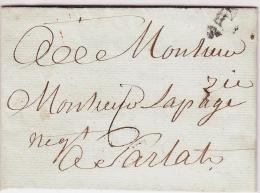 A Monsieur
Monsieur Lapage
negt
A Sarlat